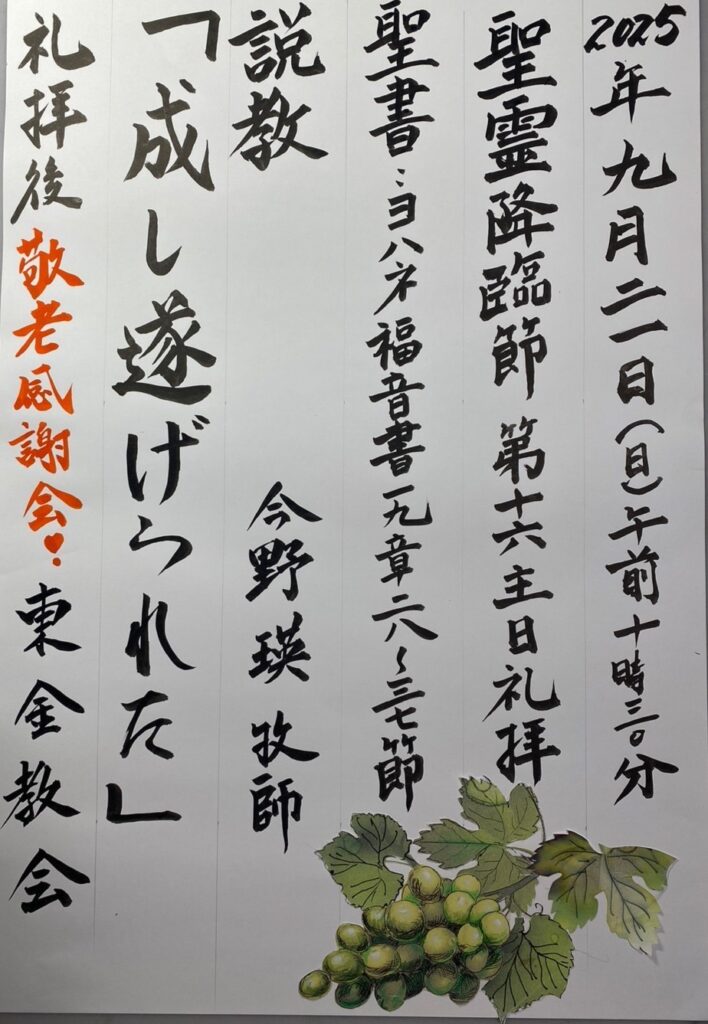 2025年九月二一日(日)午前十時三〇分
聖霊降臨節 第十六主日礼拝
聖書：ヨハネ福音書一九章二八〜三七節
説教
今野瑛 牧師
「成し遂げられた」
礼拝後 敬老感謝会♥ 東金教会